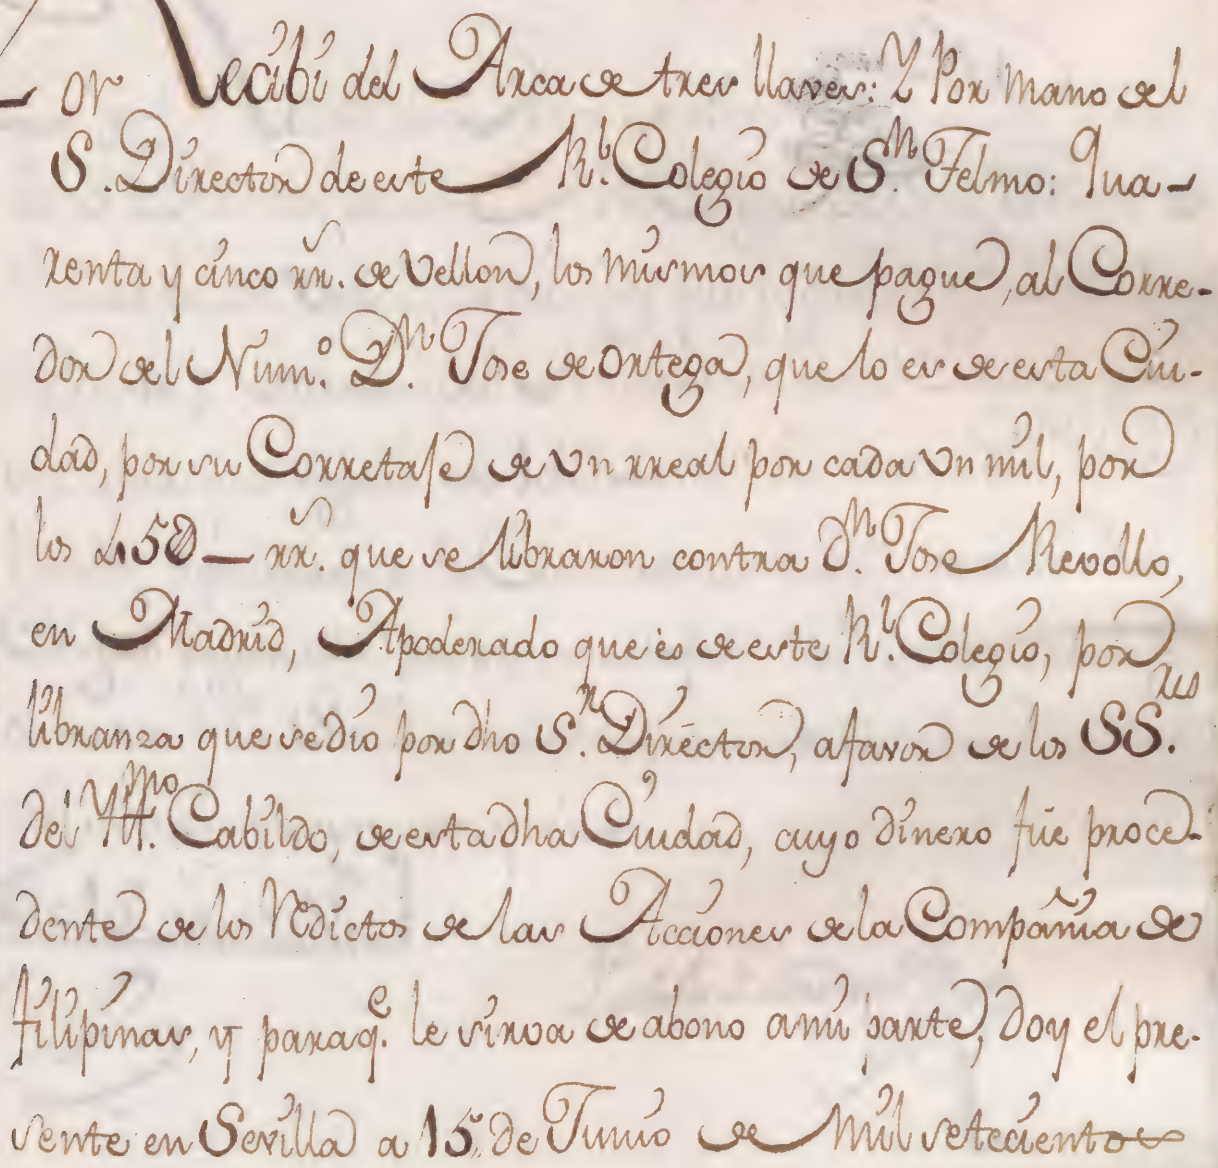 or Recibi del Arca de tres llaves: Y Por mano del
S. Director de este Rl. Colegio de Sn. Telmo: Qua-
renta y cinco rr. de Vellon, los mismos que pague, al Corre-
dor del Numo. Dn. Jose de Ortega, que lo es de esta Ciu-
dad, por su Corretaje de Un rreal por cada Un mil, por
los 45D — rr. que se libraron contra dn. Jose Revollo,
en Madrid, Apoderado que ès de este Rl. Colegio, por
libranza que se dio por dho Sr. Director, a favor de los SSres.
del Yllmo. Cabildo, de esta dha Ciudad, cuyo dinero fue proce-
dente de los Redictos de las Acciones de la Compañia de
filipinas, y para qe. le sirva de abono a mi parte, doy el pre-
sente en Sevilla a 15 de Junio de Mil setecientos